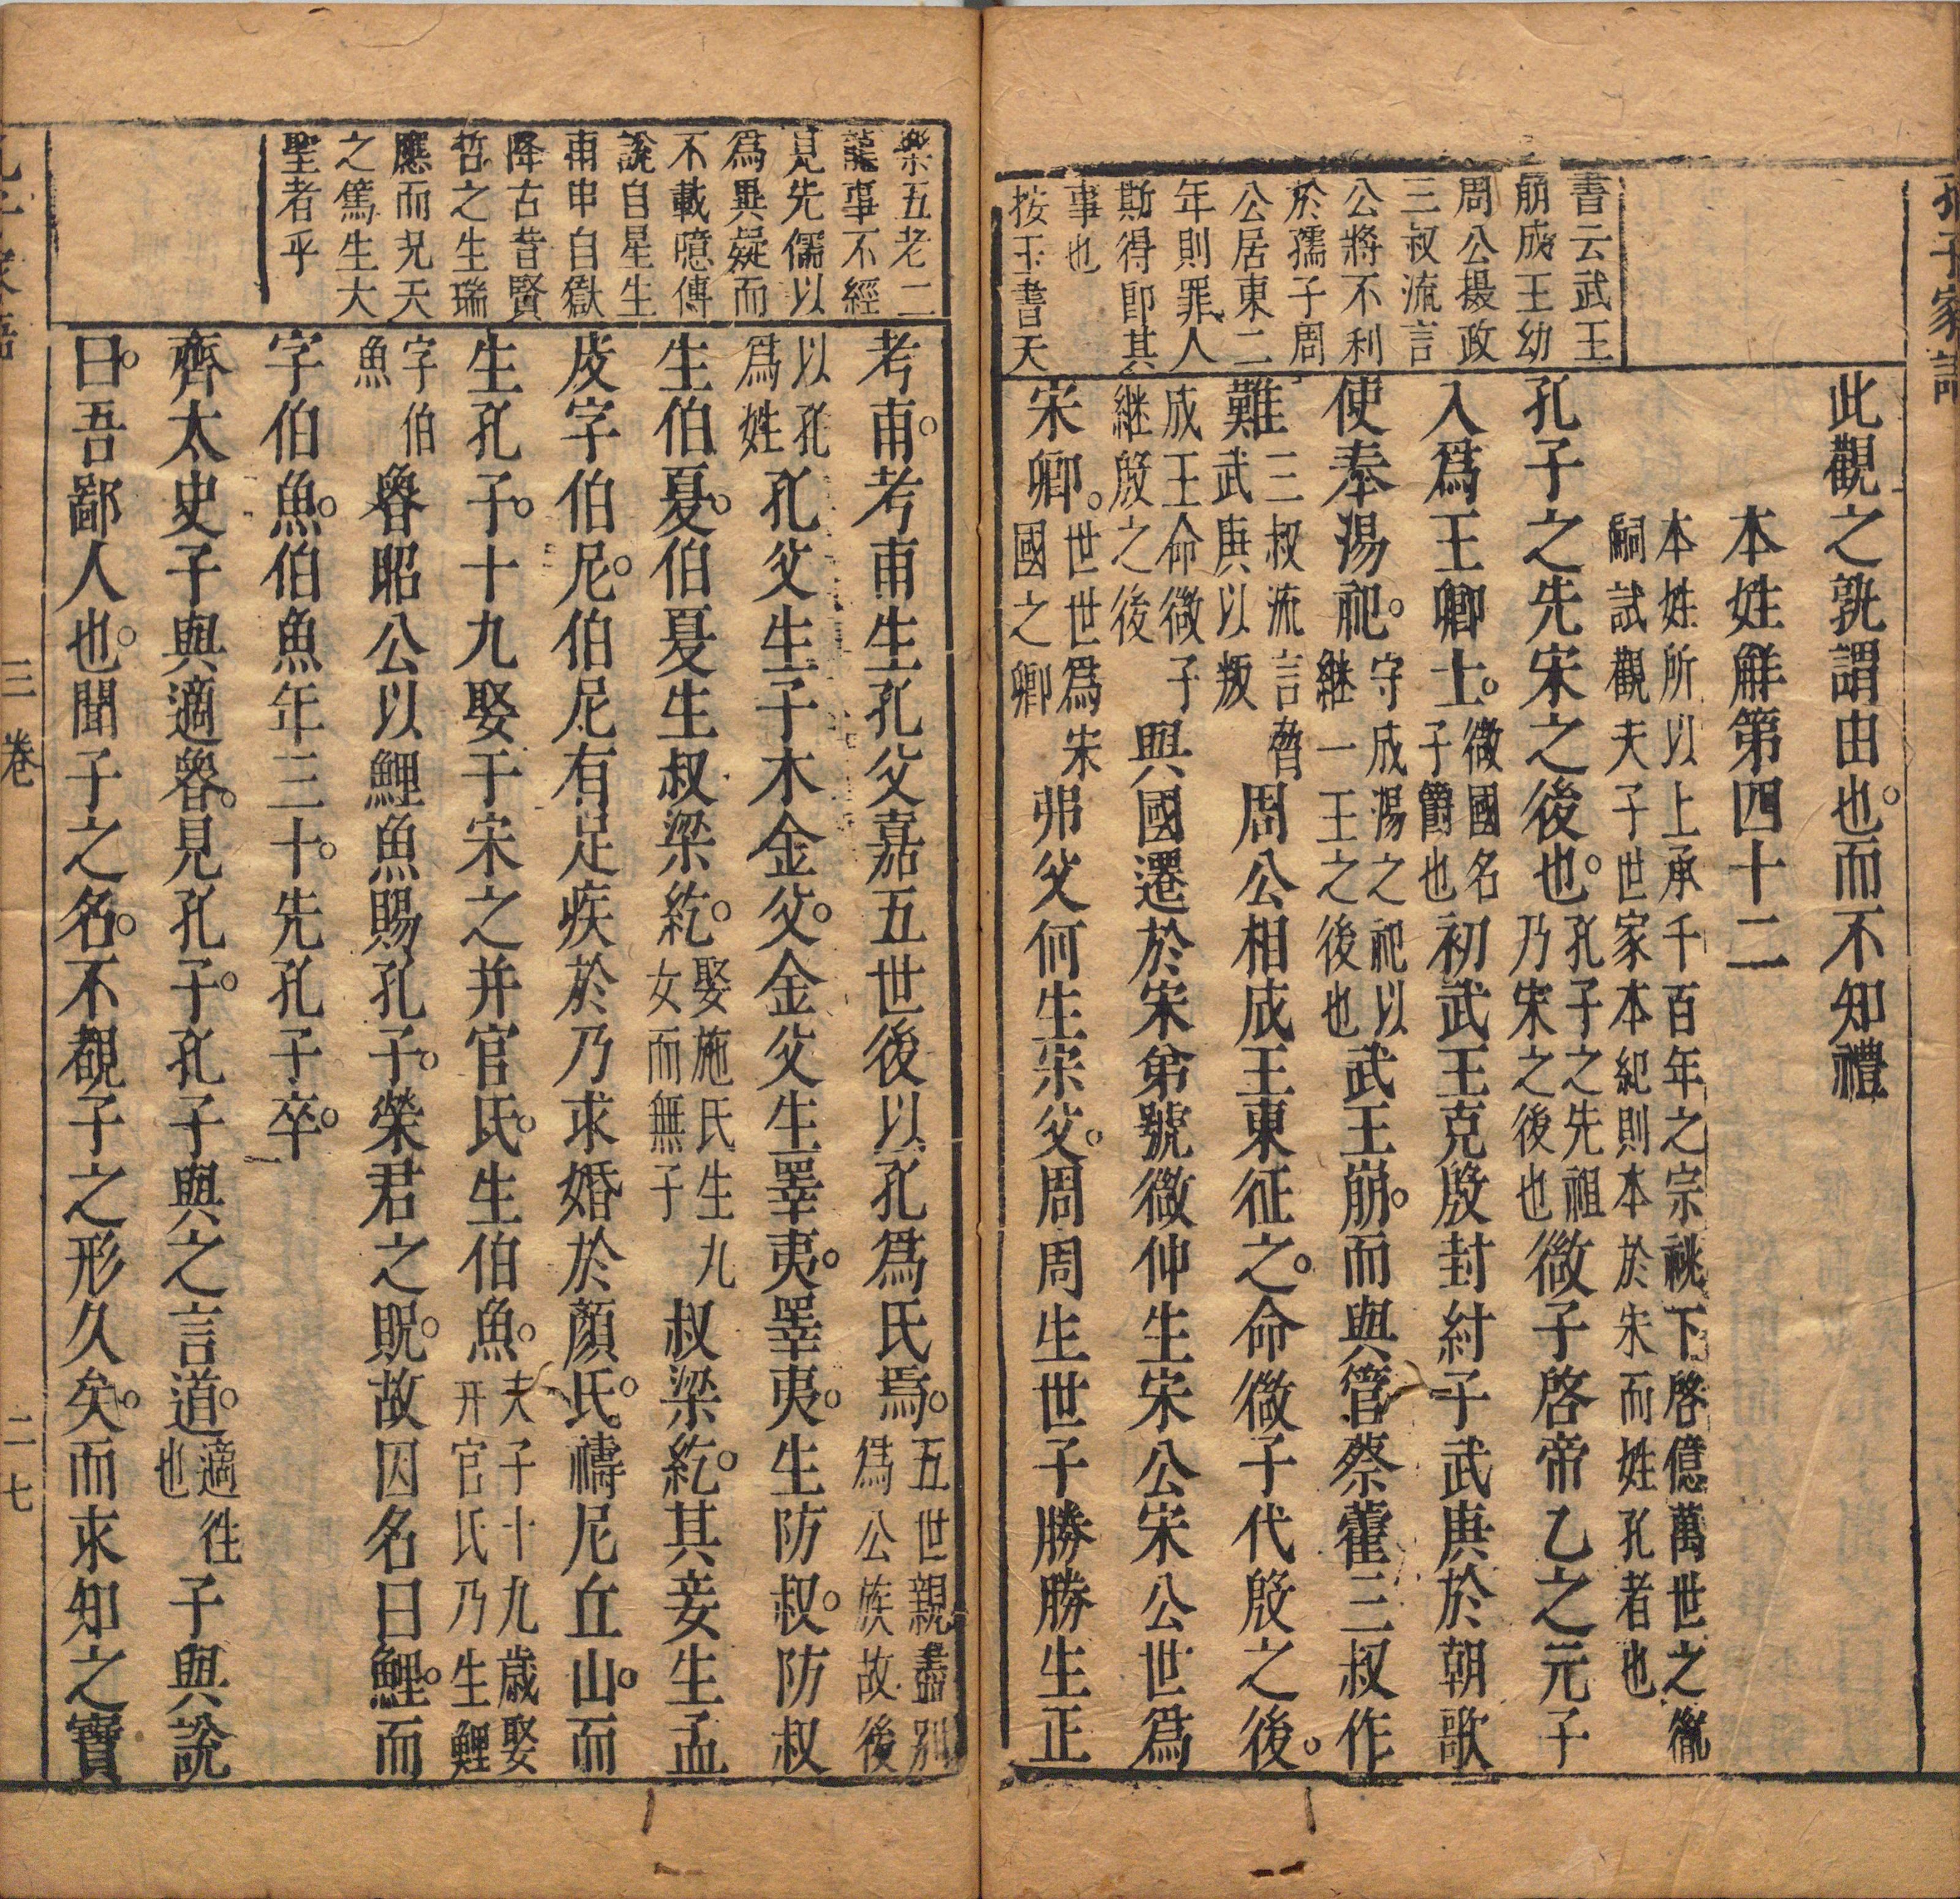 孔子家語
書云武王
崩成王幼
周公攝政
三叔流言
公將不利
於孺子周
公居東二
年則罪人
斯得即其
事也
按玉書天
此觀之孰謂由也而不知禮
本姓解第四十二
本姓所以上承千百年之宗祧下啓億萬世之徹
嗣試觀夫子世家本紀則本於宋而姓孔者也
孔子之先宋之後也孔子之先祖乃宋之後也微子啓帝乙之元子
入爲王卿士微國名子爵也初武王克殷封紂子武庚於朝歌
使奉湯祀守成湯之祀以継一王之後也武王崩而與管蔡霍三叔作
難三叔流言脅武庚以叛周公相成王東征之命微子代殷之後
成王命微子継殷之後與國遷於宋弟號微仲生宋公宋公世爲
宋卿世世爲宋國之卿弗父何生宗父周周生世子勝勝生正
樂五老二
龍事不經
見先儒以
爲異疑而
不載噫傅
說自星生
甫申自嶽
降古昔賢
哲之生瑞
應而況天
之篤生大
聖者乎
考甫考甫生孔父嘉五世後以孔爲氏焉五世親盡別爲公族故後
以孔爲姓孔父生子木金父金父生睪夷睪夷生防叔防叔
生伯夏伯夏生叔梁紇娶施氏生九女而無子叔梁紇其妾生孟
皮字伯尼伯尼有足疾於乃求婚於顏氏禱尼丘山而
生孔子十九娶于宋之并官氏生伯魚夫子十九歲娶幵官氏乃生鯉
字伯魚魯昭公以鯉魚賜孔子榮君之貺故因名曰鯉而
字伯魚伯魚年三十先孔子卒
齊太史子與適魯見孔子孔子與之言道適往也子與說
曰吾鄙人也聞子之名不覩子之形久矣而求知之寶
三卷
二七